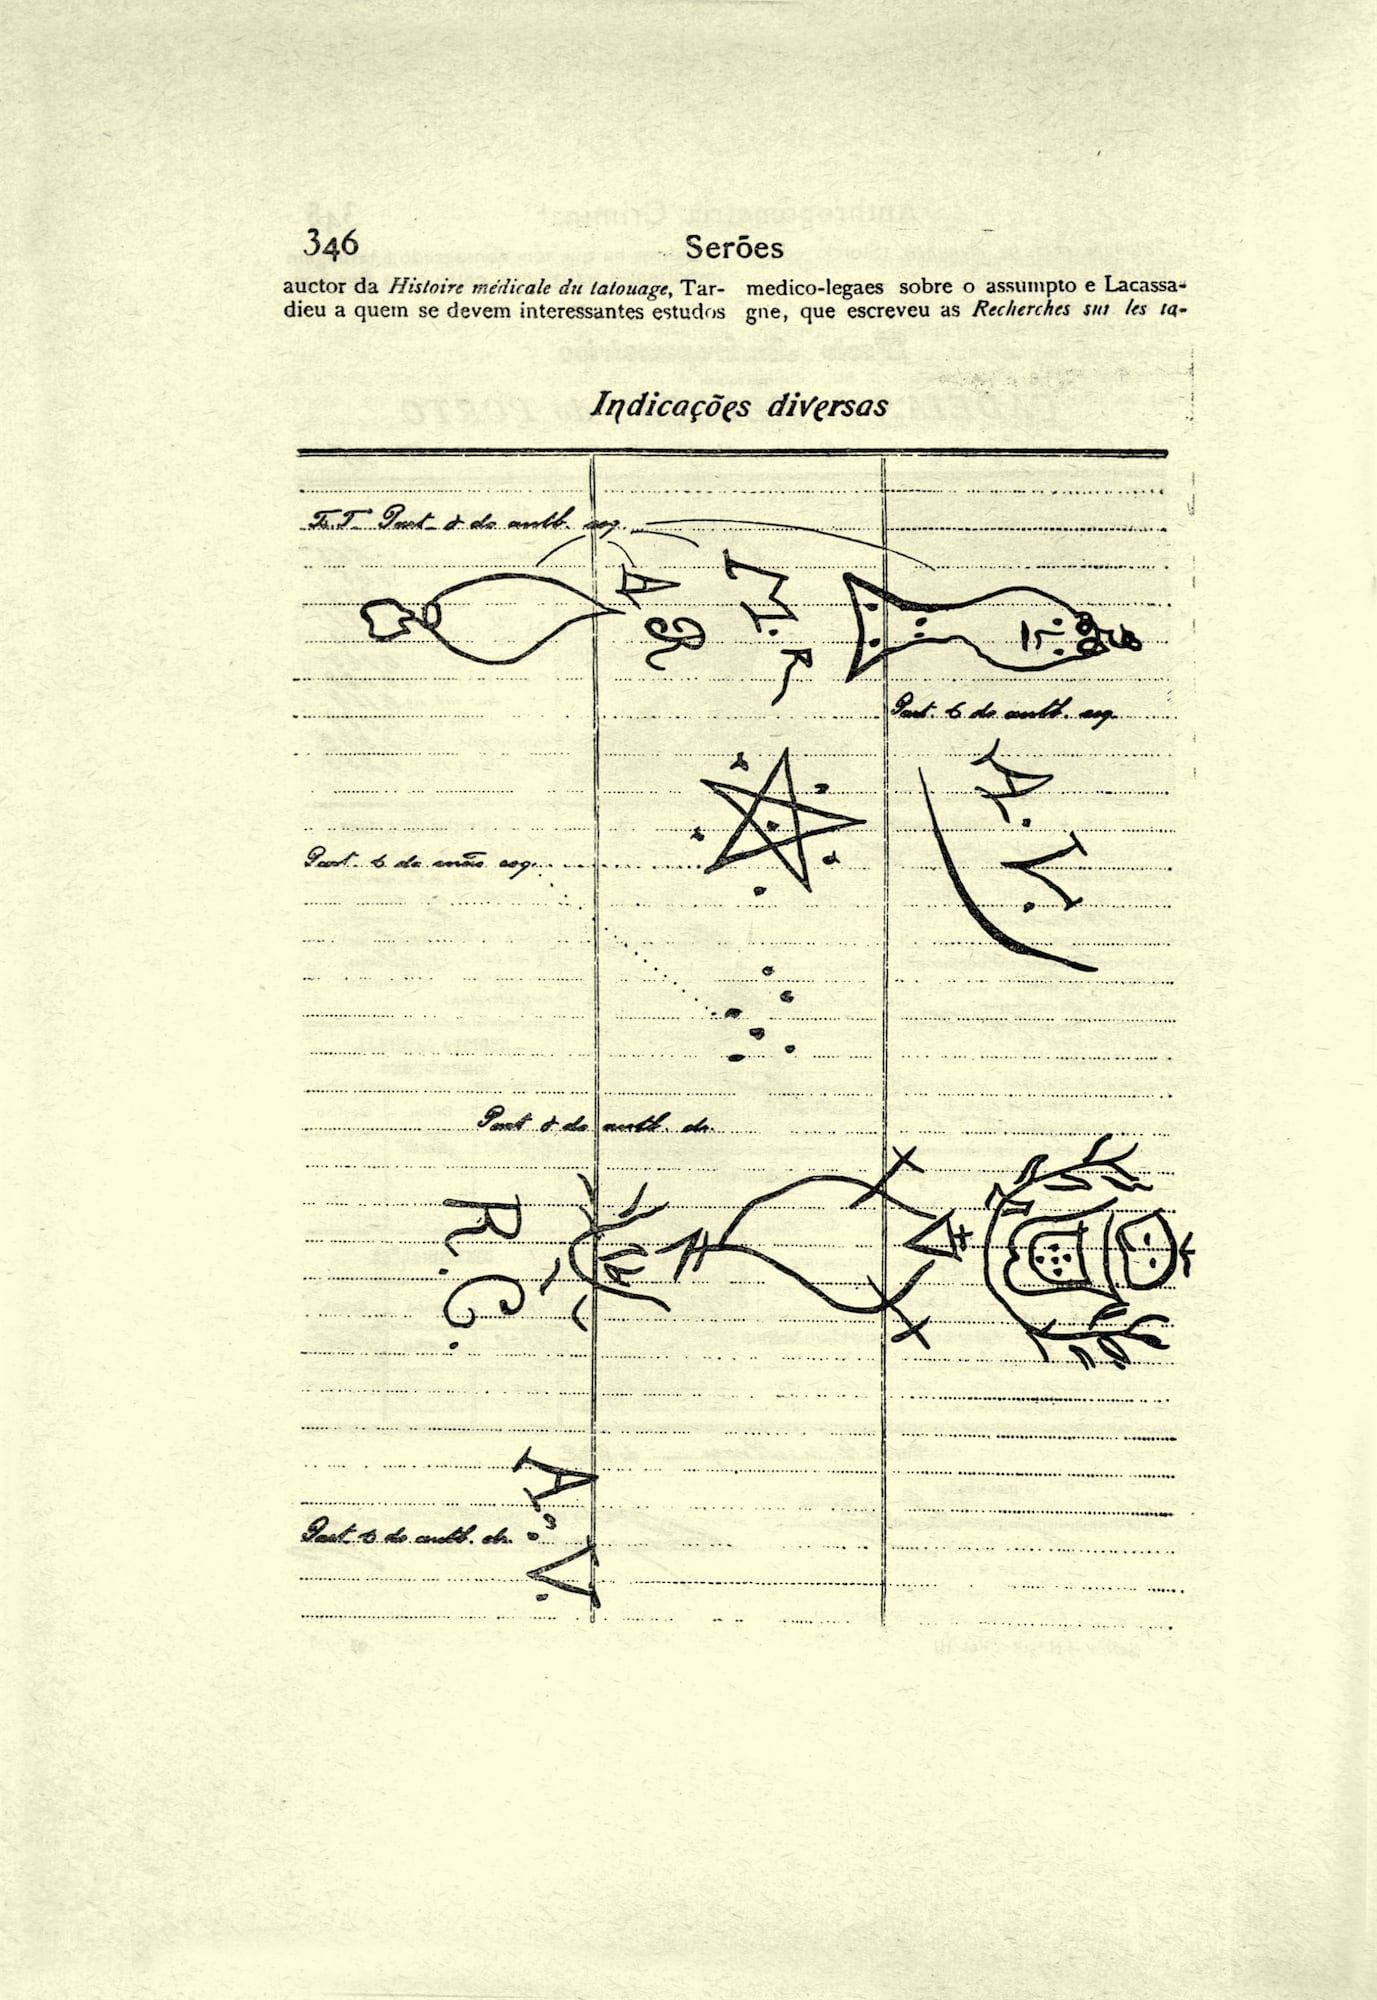 346 Serões
auctor da Histoire médicale du tatouage, Tar-
dieu a quem se devem interessantes estudos
medico-legaes sobre o assumpto e Lacassa-
gne, que escreveu as Recherches sur les ta-
Indicações diversas
Part. do antb. esq.
A
R
M.
R
Part. do antb. esq.
A. V.
Part. do mão esq.
Part do antb. dr.
R. C.
A. V.
Part. do antb. dr.